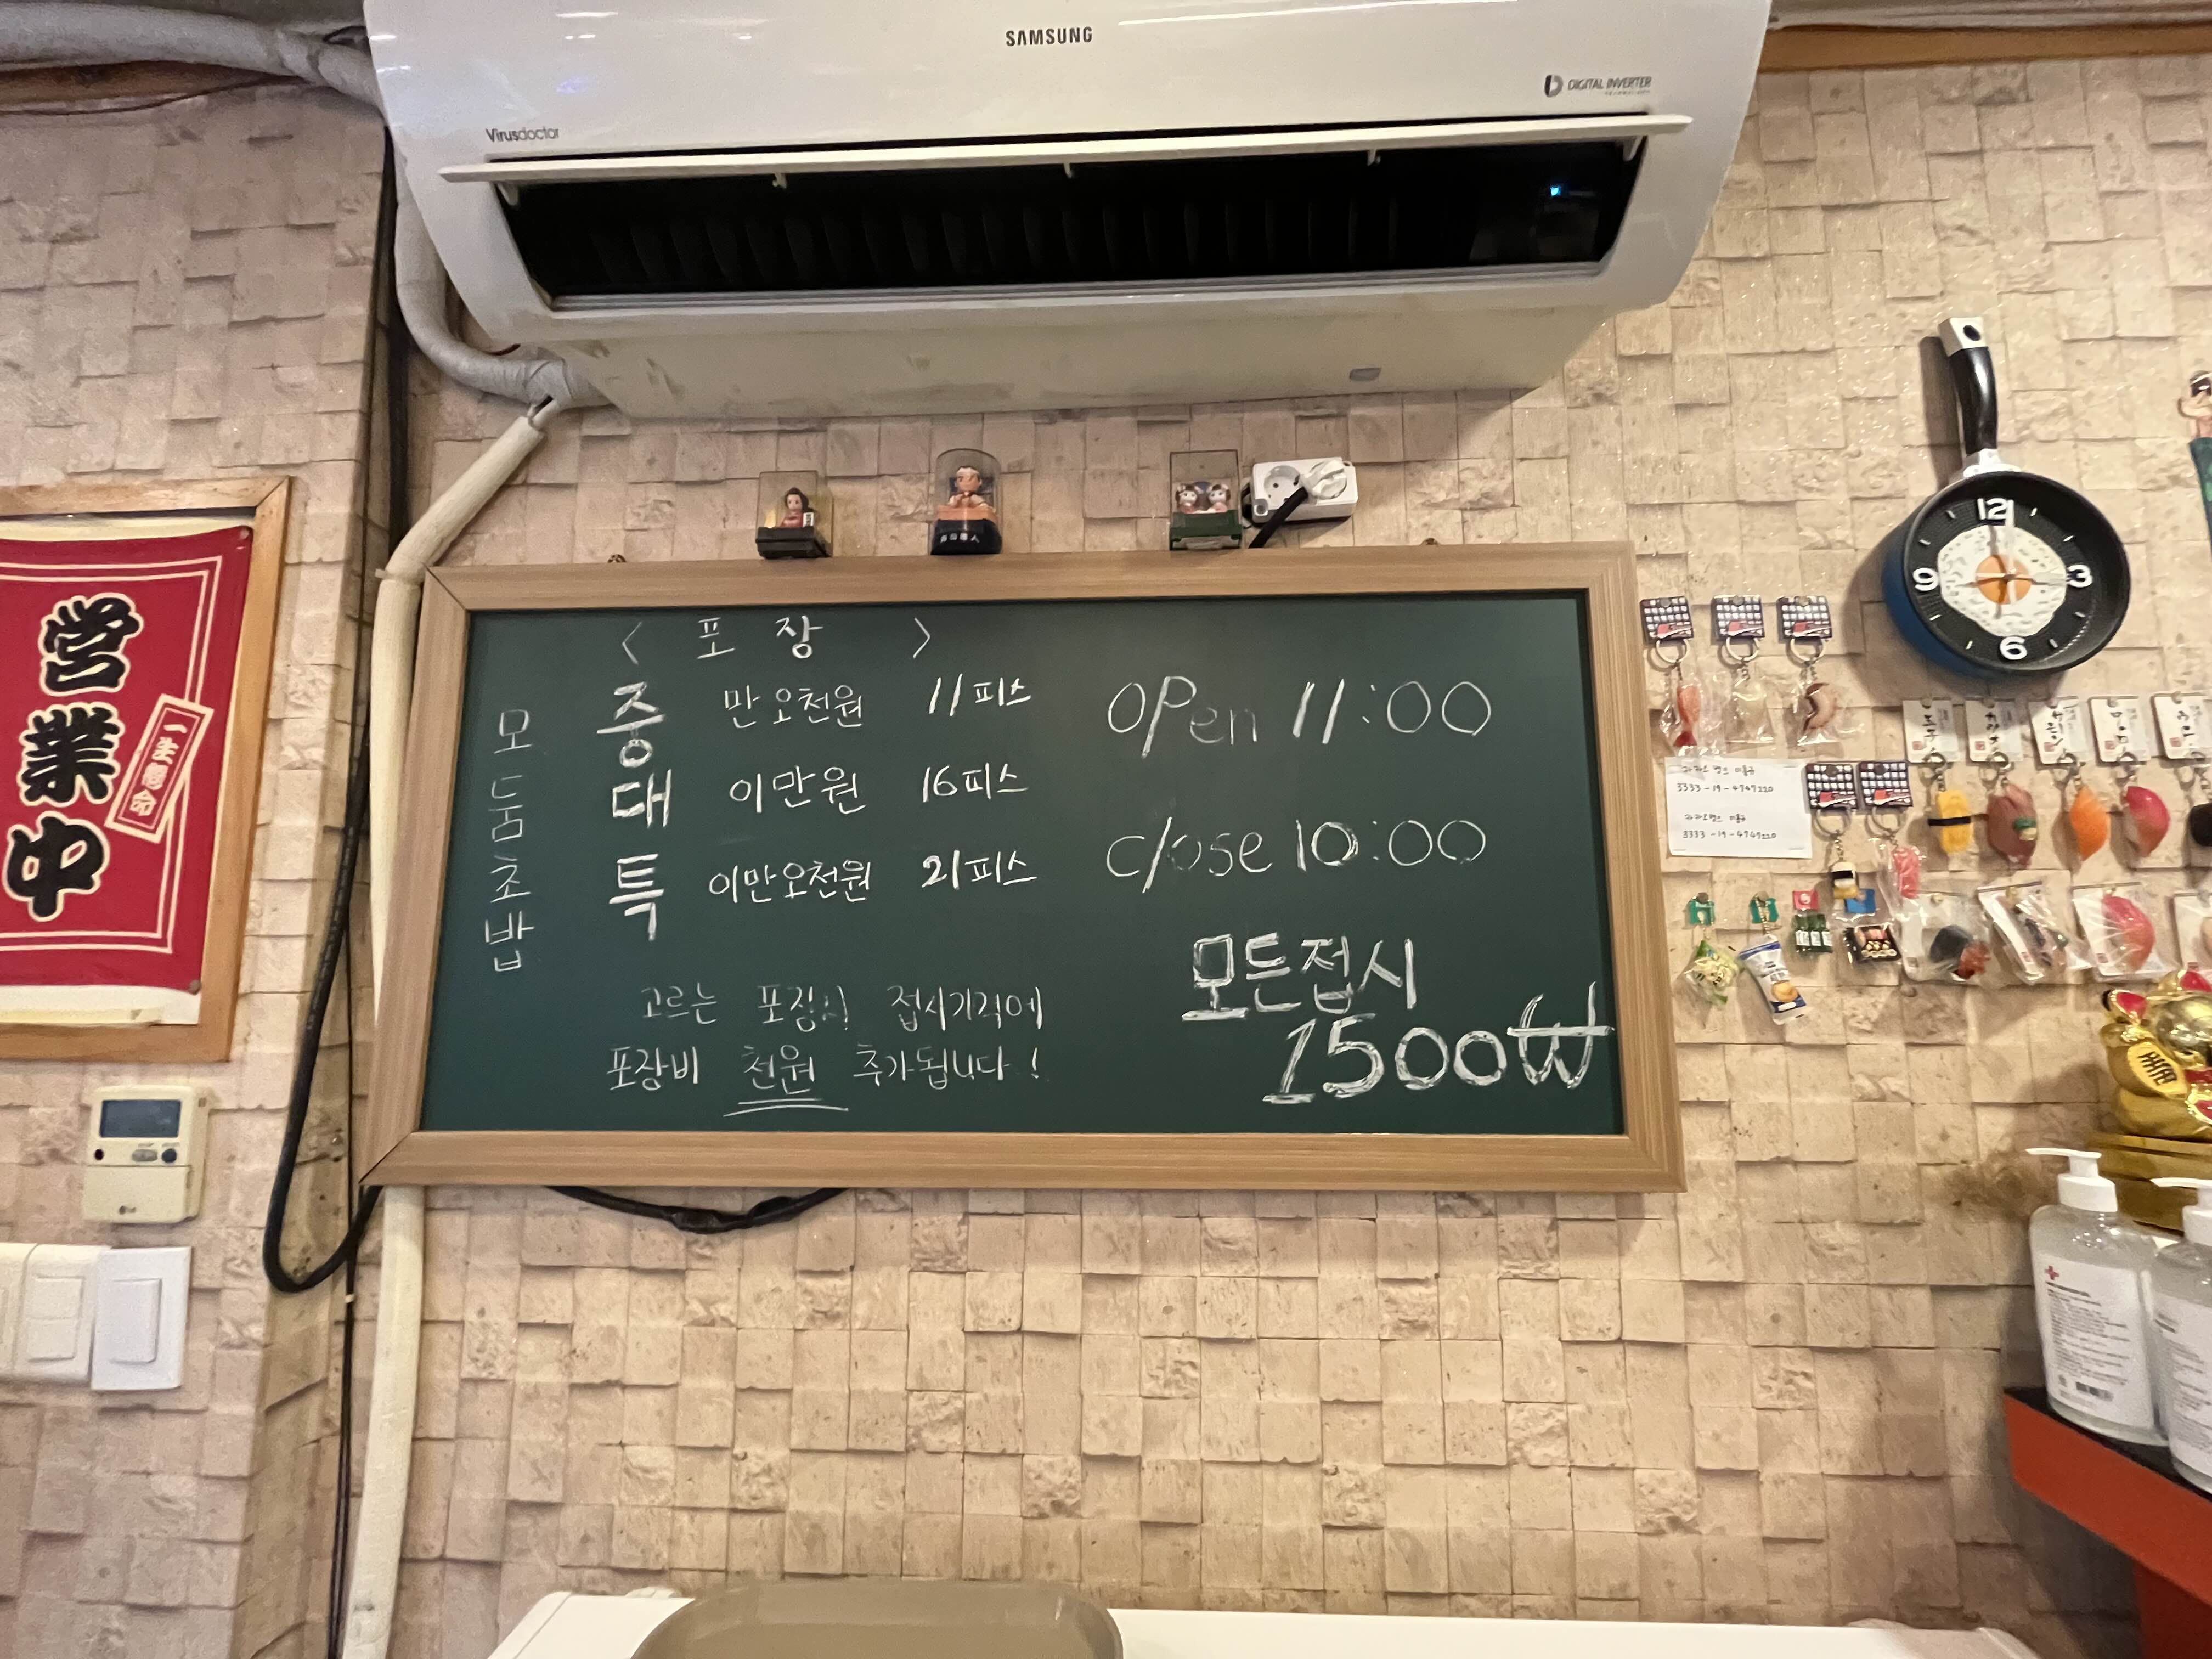 SAMSUNG
DIGITAL INVERTER
Virusdoctor
営業中
一生懸命
< 포장 >
모둠초밥
중 만오천원 11피스
대 이만원 16피스
특 이만오천원 21피스
고르는 포장시 접시가격에
포장비 천원 추가됩니다!
open 11:00
close 10:00
모든접시
1500₩
12
3
6
9
3333-19-4747220
3333-19-4747220
LG